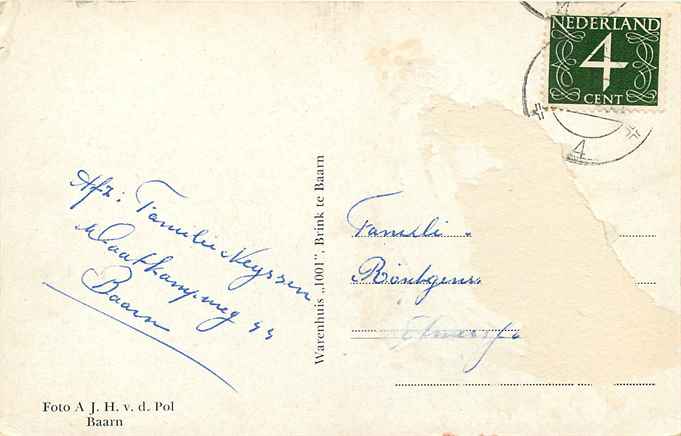 NEDERLAND
4
CENT
4
Afz: Familie Meyssen
Maatkampweg 44
Baarn
Warenhuis „1001”, Brink te Baarn
Famili
Röntgens
Foto A J. H. v. d. Pol
Baarn